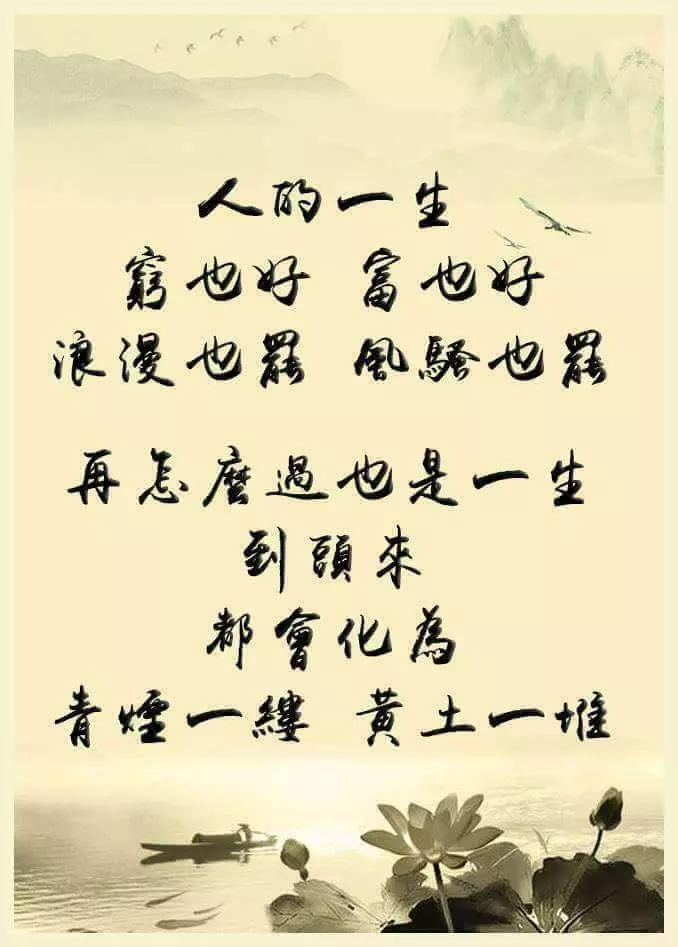 人的一生
窮也好 富也好
浪漫也罷 風騷也罷
再怎麼過也是一生
到頭來
都會化為
青煙一縷 黃土一堆